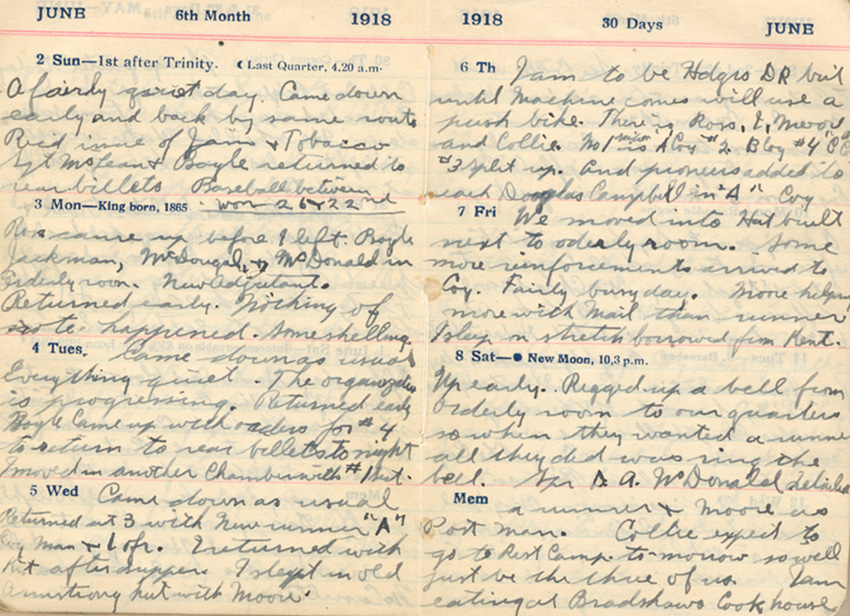 JUNE 6th Month 1918
2 Sun—1st after Trinity. ☾ Last Quarter, 4.20 a.m.
A fairly quiet day. Came down
early and back by same route
Recd issue of Jam & Tobacco
Sgt McLean & Boyle returned to
rear billets Baseball between
won 26 & 22 nd
3 Mon—King born, 1865
Ross came up before I left. Boyle
Jackman, McDougal, & McDonald in
orderly room. New Adjutant.
Returned early. Nothing of
note happened. Some shelling.
4 Tues. Came down as usual
Everything quiet. The organization
is progressing. Returned early
Boyle came up with orders for #4
to return to rear billets to night
moved in another Chamber with #1 Sect.
5 Wed Came down as usual
Returned at 3 with New runner "A"
Coy Man & 1 ofr. I returned with
Kit after supper. I slept in old
Armstrong hut with Moore.
1918 30 Days JUNE
6 Th I am to be Hdqrs DR but
until Machine comes will use a
push bike. There is Ross, I, Moore
and Collie. No 1 is A Coy #2 B Coy #4 "C" C
#3 split up. And pioneers added to
each Douglas Campbell in "A" Coy
7 Fri We moved into Hut built
next to oderly room. Some
more reinforcements arrived to
Coy. Fairly busy day. Moore helping
more with Mail than runner
I sleep on stretch borrowed from Kent.
8 Sat—● New Moon, 10,3 p.m.
Up early. Rigged up a bell from
Orderly room to our quarters
so when they wanted a runner
all they did was ring the
bell. Spr D. A. McDonald detailed
Mem a runner & Moore as
Post man. Collie expect to
go to Rest Camp to-morrow so will
just be the three of us. I am
eating at Bradshaws Cook house